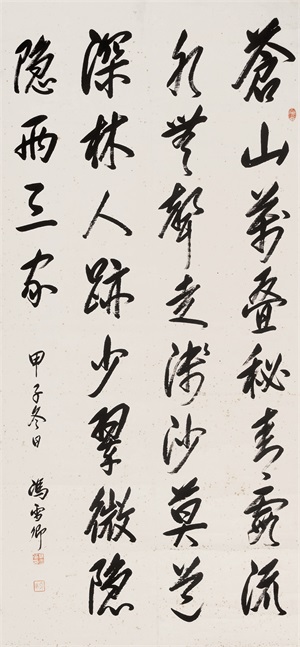 蒼山萬叠秘青霞流
水無聲走淺沙莫道
深林人跡少翠微隐
隐两三家
甲子冬日 馮雪卿